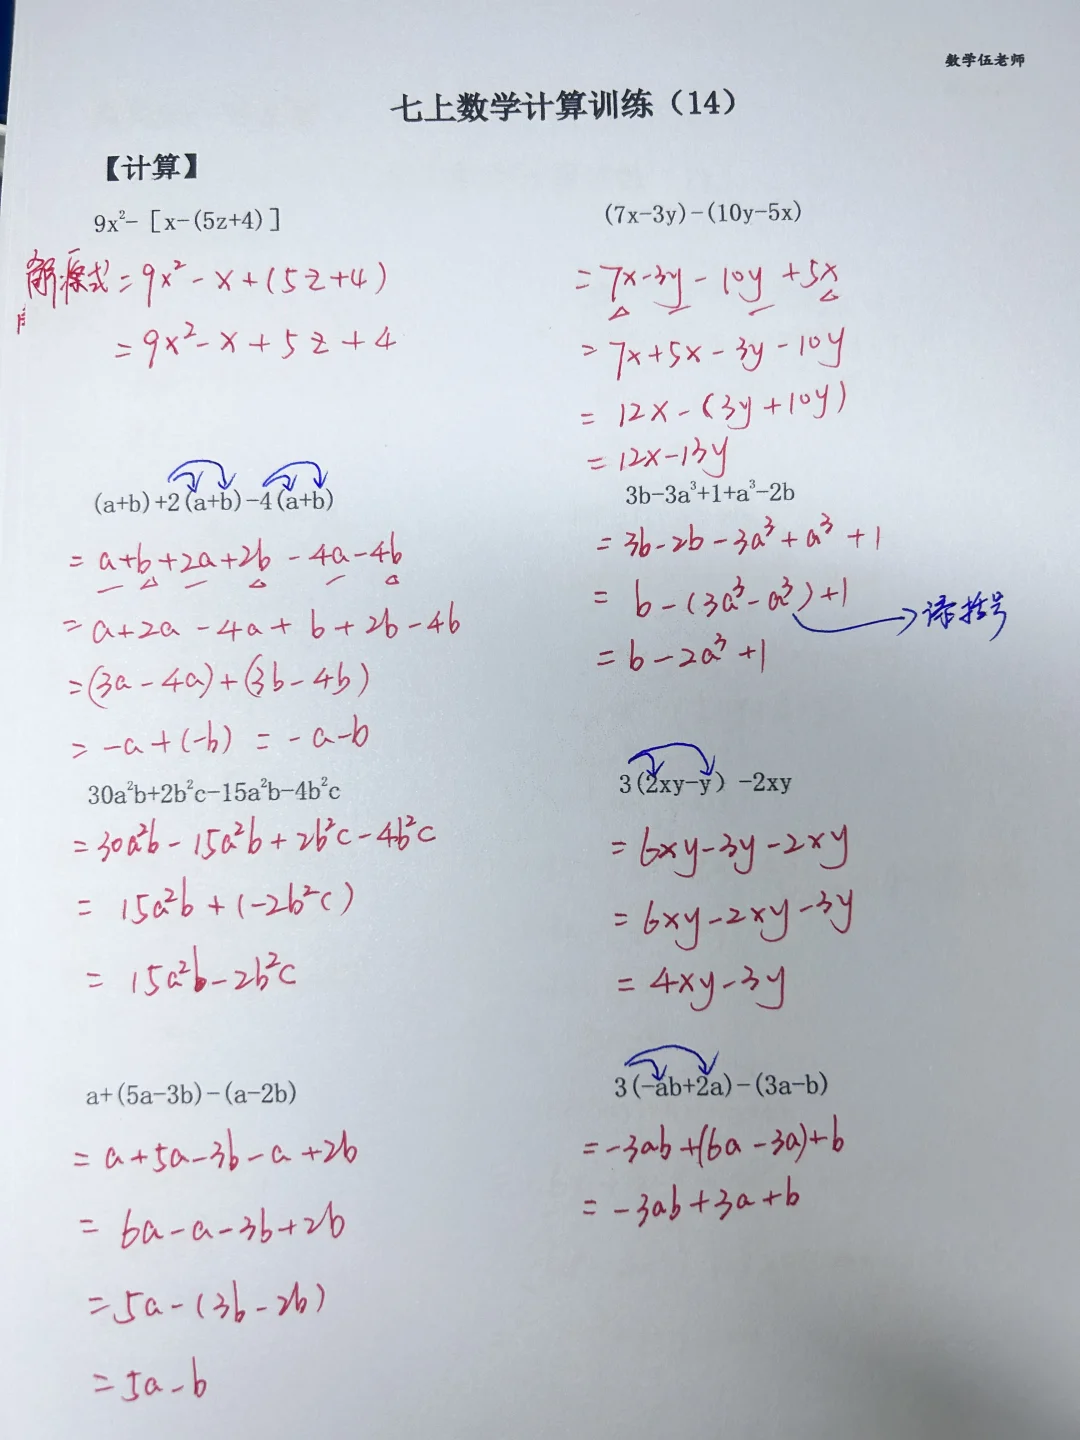 数学伍老师
七上数学计算训练（14）
【计算】
9x²-［x-(5z+4)］
解：原式=9x²-x+(5z+4)
=9x²-x+5z+4
(7x-3y)-(10y-5x)
=7x-3y-10y+5x
=7x+5x-3y-10y
=12x-(3y+10y)
=12x-13y
(a+b)+2(a+b)-4(a+b)
=a+b+2a+2b-4a-4b
=a+2a-4a+b+2b-4b
=(3a-4a)+(3b-4b)
=-a+(-b)=-a-b
3b-3a³+1+a³-2b
=3b-2b-3a³+a³+1
=b-(3a³-a³)+1
添括号
=b-2a³+1
30a²b+2b²c-15a²b-4b²c
=30a²b-15a²b+2b²c-4b²c
=15a²b+(-2b²c)
=15a²b-2b²c
3(2xy-y)-2xy
=6xy-3y-2xy
=6xy-2xy-3y
=4xy-3y
a+(5a-3b)-(a-2b)
=a+5a-3b-a+2b
=6a-a-3b+2b
=5a-(3b-2b)
=5a-b
3(-ab+2a)-(3a-b)
=-3ab+(6a-3a)+b
=-3ab+3a+b